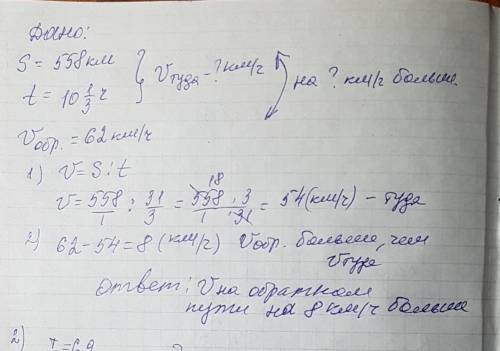 Дано:
S = 558 км
t = 10 1/3 ч } Vтуда - ? км/ч на ? км/ч больше.
Vобр. = 62 км/ч
1) V = S : t
V = 558/1 : 31/3 = 558 18 · 3 / 1 · 31 = 54 (км/ч) - туда
2) 62 - 54 = 8 (км/ч) Vобр. больше, чем
Vтуда
Ответ: V на обратном
пути на 8 км/ч больше
2)